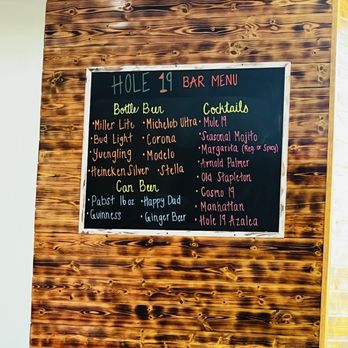 HOLE 19 BAR MENU
Bottle Beer
• Miller Lite • Michelob Ultra
• Bud Light • Corona
• Yuengling • Modelo
• Heineken Silver • Stella
Can Beer
• Pabst 16oz • Happy Dad
• Guinness • Ginger Beer
Cocktails
• Mule 19
• Seasonal Mojito
• Margarita (Reg. or Spicy)
• Arnold Palmer
• Old Stapleton
• Cosmo 19
• Manhattan
• Hole 19 Azalea